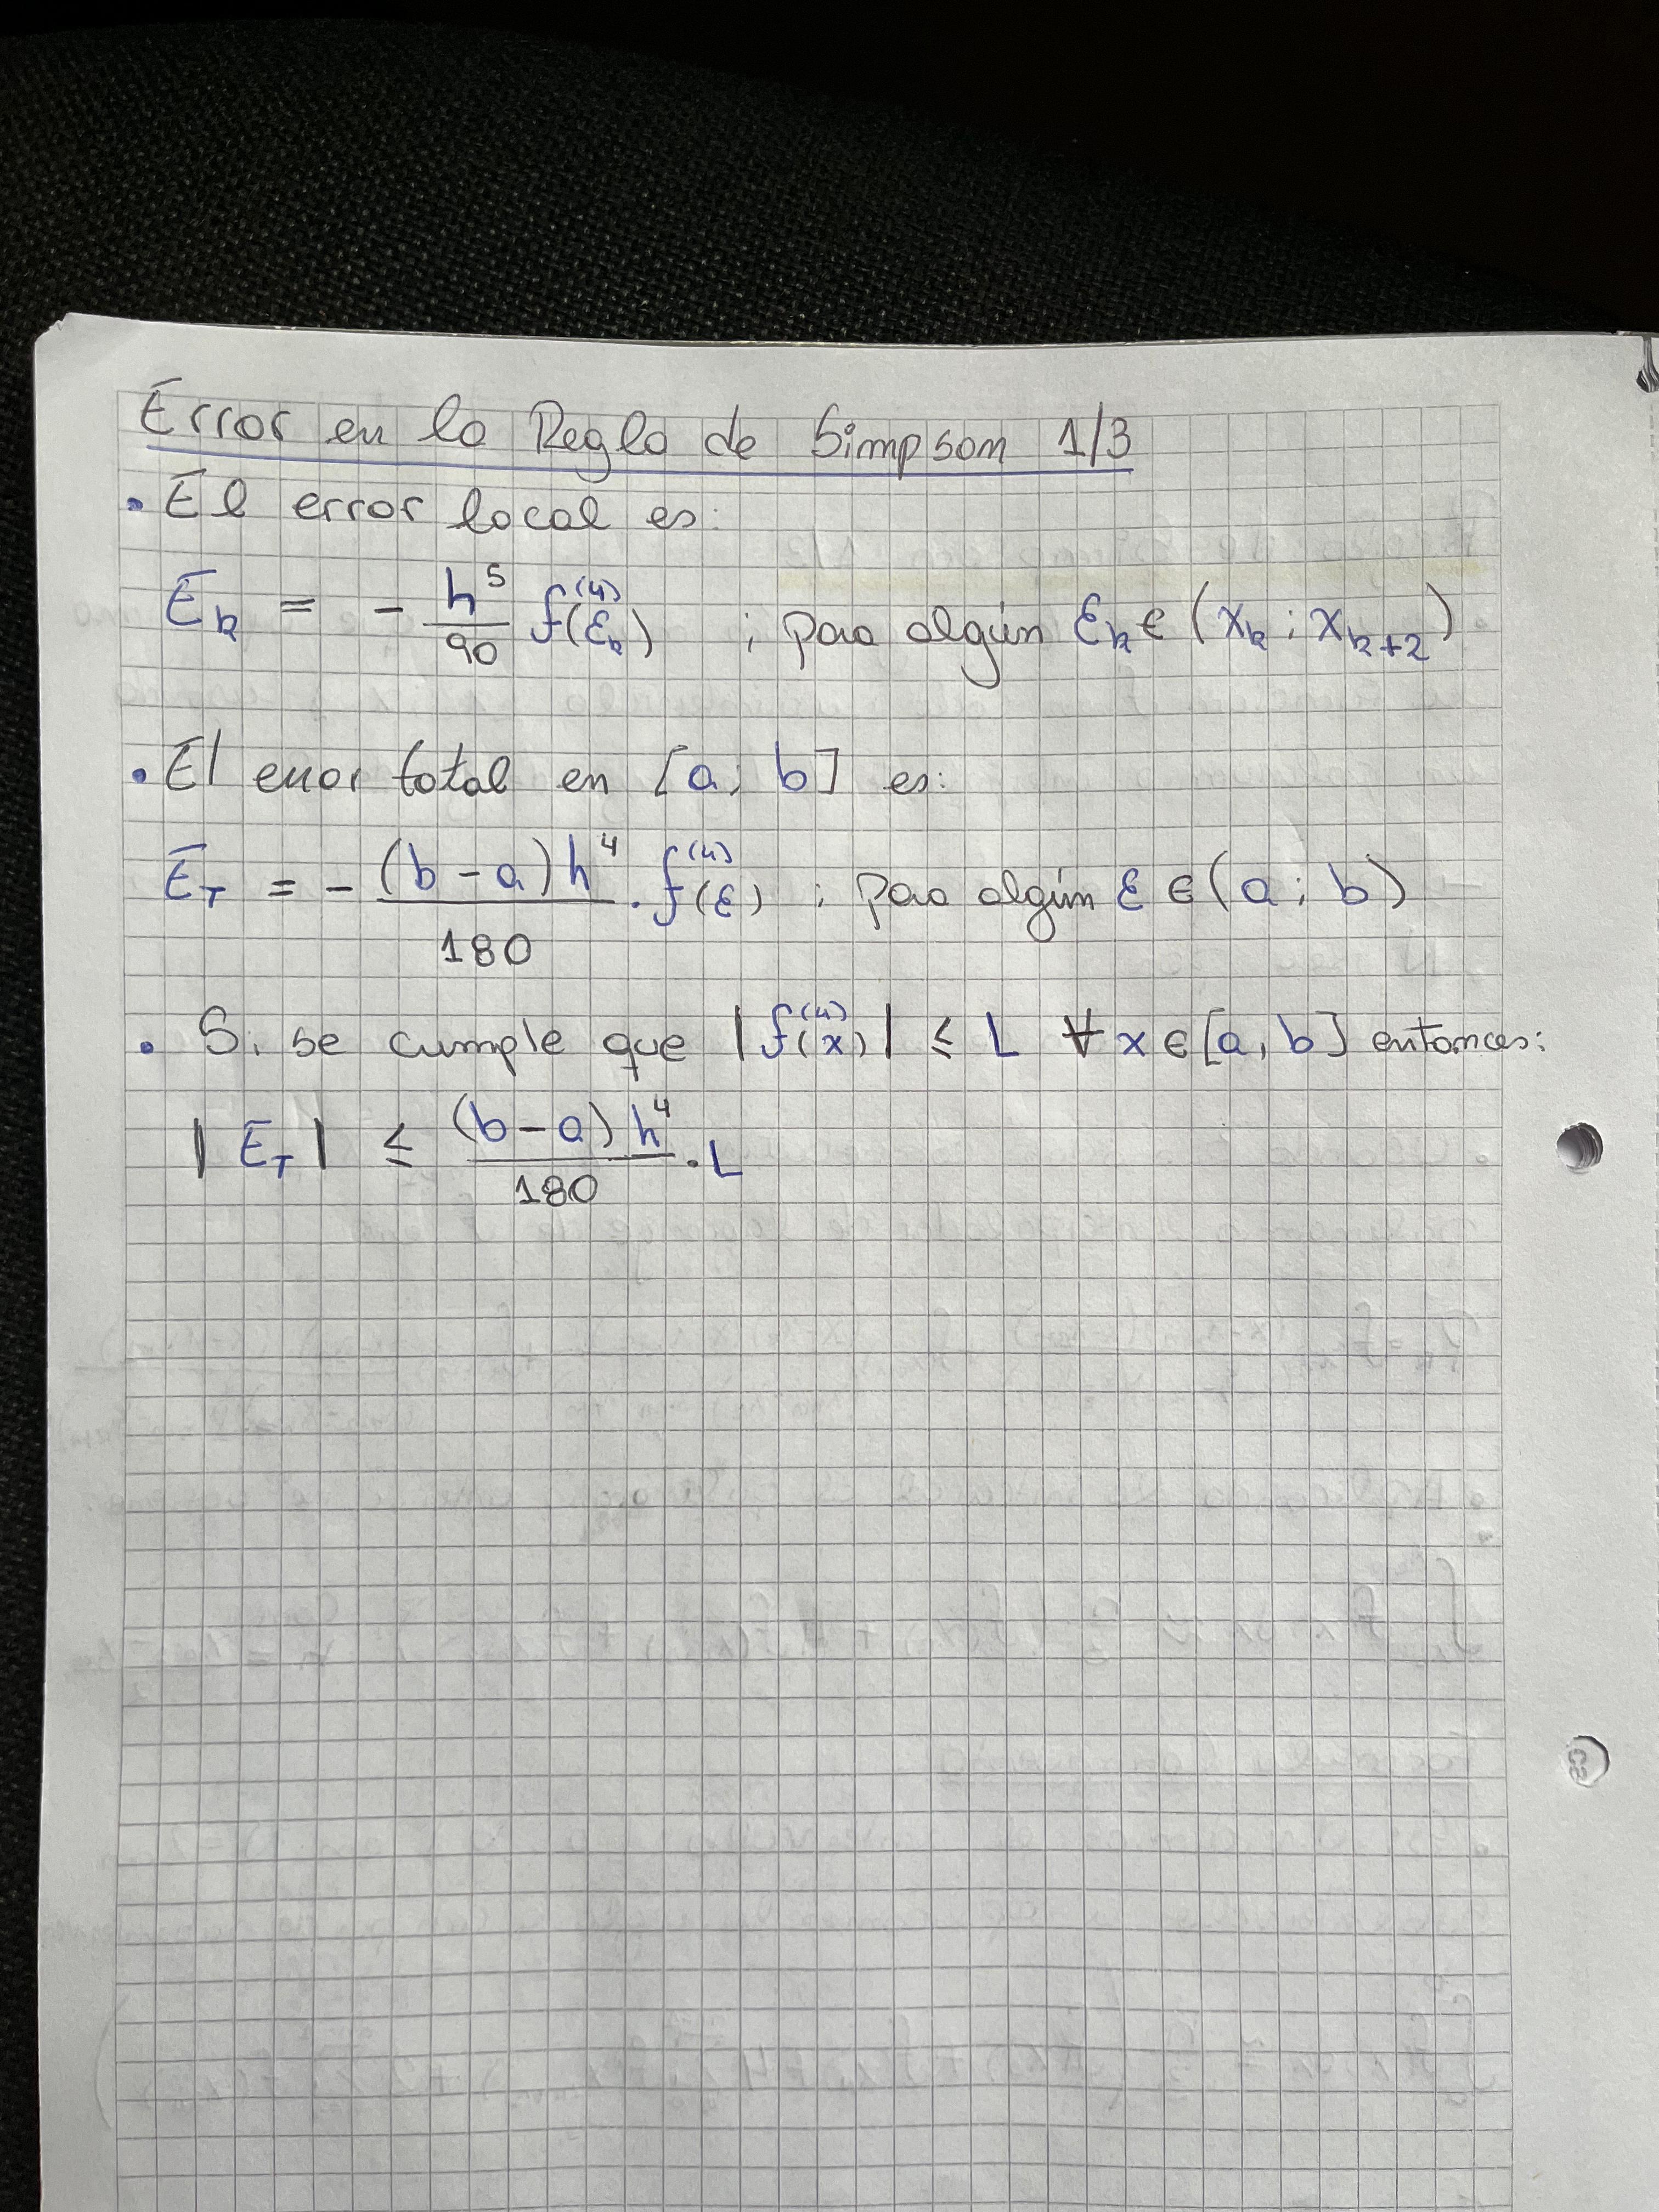 Error en la Regla de Simpson 1/3
• El error local es:
E_k = - h^5/90 f^(4)(ε_k) ; para algún ε_k ∈ (x_k ; x_k+2)
• El error total en [a; b] es:
E_T = - (b - a) h^4/180 · f^(4)(ε) ; para algún ε ∈ (a ; b)
• Si se cumple que |f^(4)(x)| ≤ L ∀ x ∈ [a, b] entonces:
|E_T| ≤ (b - a) h^4/180 · L